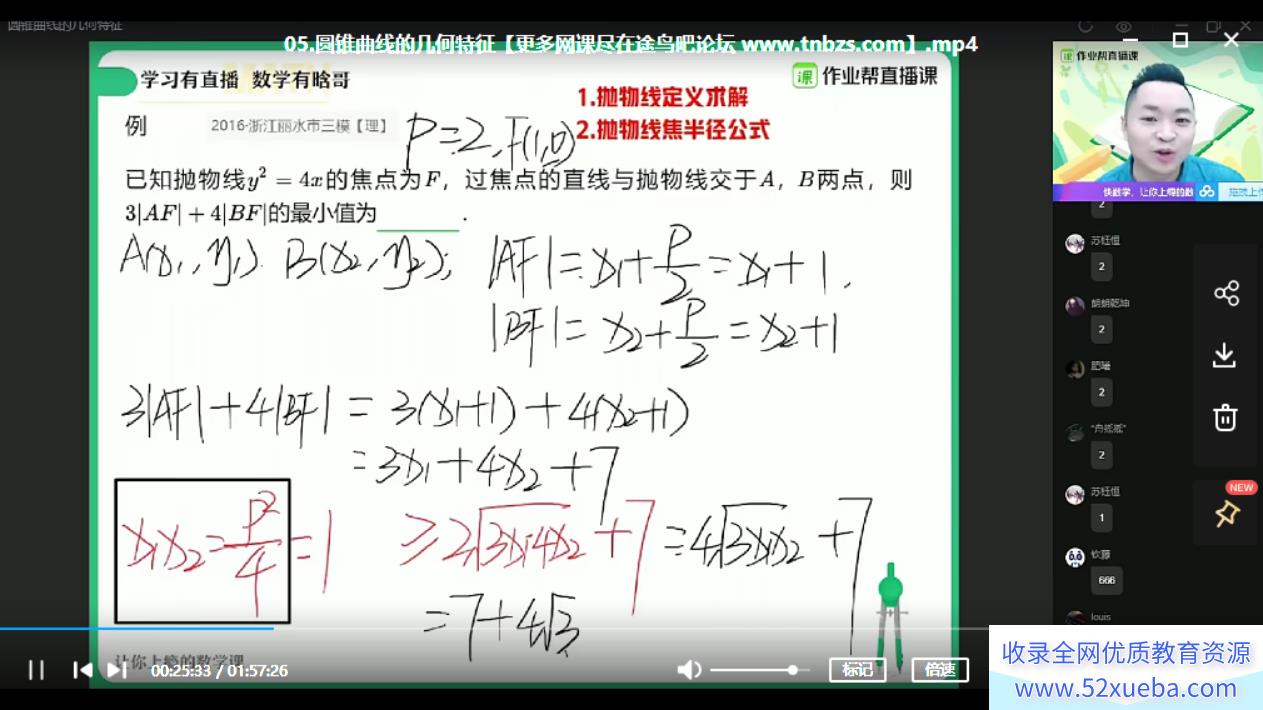 圆锥曲线的几何特征
05.圆锥曲线的几何特征【更多网课尽在途鸟吧论坛 www.tnbzs.com】.mp4
学习有直播 数学有晗哥
课 作业帮直播课
1.抛物线定义求解
2.抛物线焦半径公式
例 2016·浙江丽水市三模【理】
P=2, F(1,0)
已知抛物线y²=4x的焦点为F，过焦点的直线与抛物线交于A，B两点，则
3|AF|+4|BF|的最小值为 .
A(x₁,y₁). B(x₂,y₂); |AF|=x₁+P/2=x₁+1.
|BF|=x₂+P/2=x₂+1
3|AF|+4|BF| = 3(x₁+1)+4(x₂+1)
=3x₁+4x₂+7
x₁x₂=P²/4=1
≥2√3x₁·4x₂+7=4√3x₁x₂+7
=7+4√3
让你上瘾的数学课
00:25:33 / 01:57:26
标记
倍速
课 作业帮直播课
快数学，让你上瘾的数
拖拽上传
2
苏钰恒
2
胡胡乾坤
2
肥曦
2
2
苏钰恒
1
钦藤
666
louis
NEW
收录全网优质教育资源
www.52xueba.com